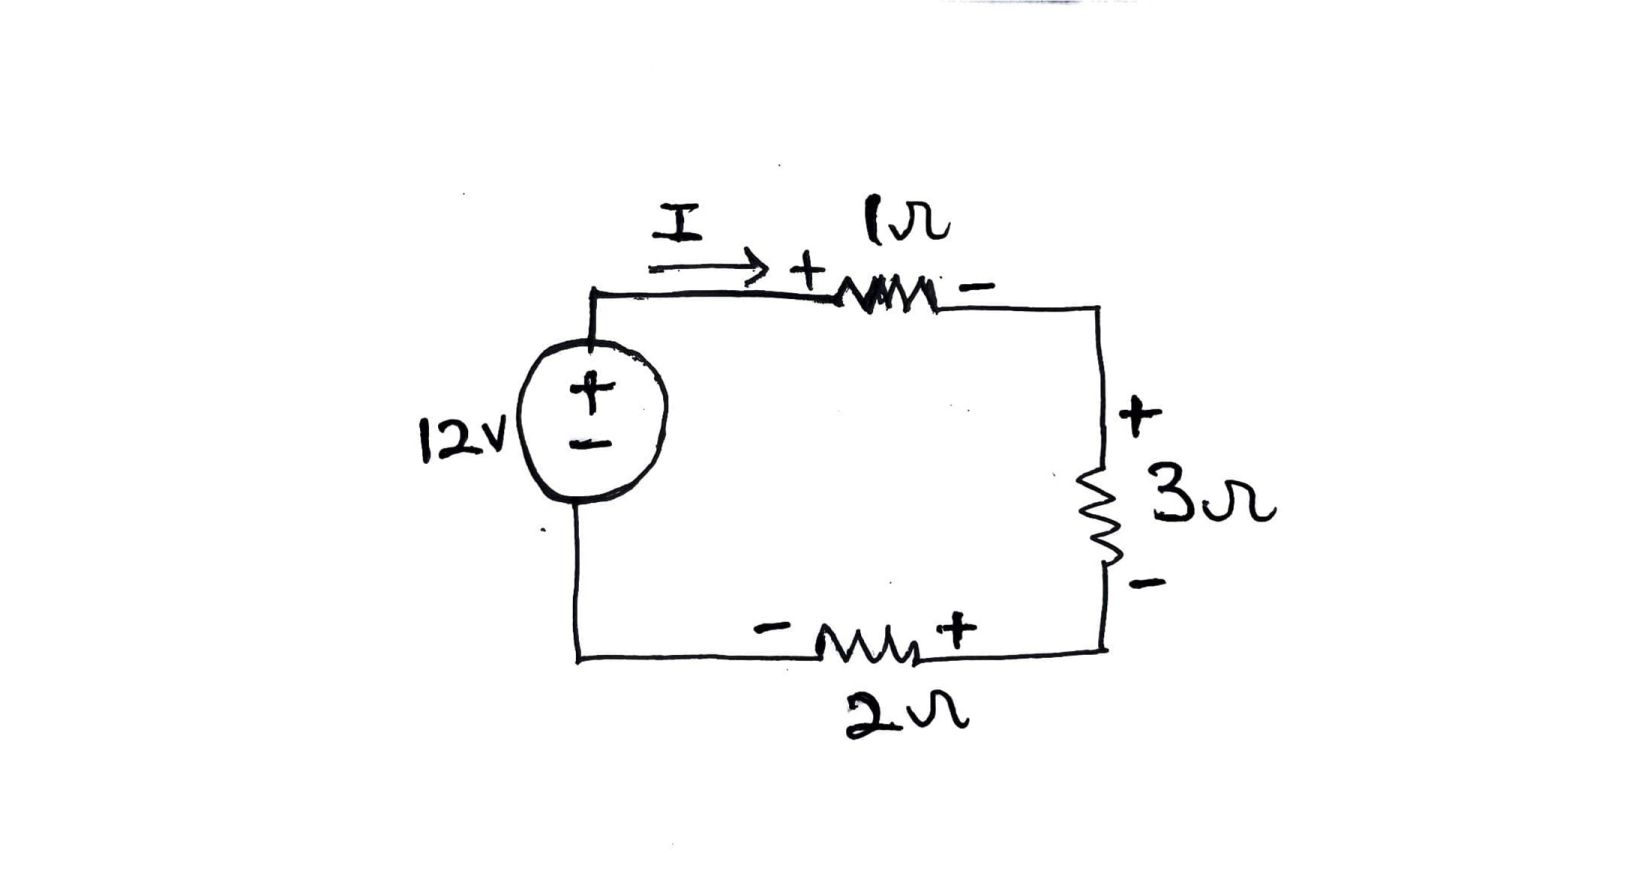 I
1Ω
+ -
12V
+
-
+
3Ω
-
- +
2Ω